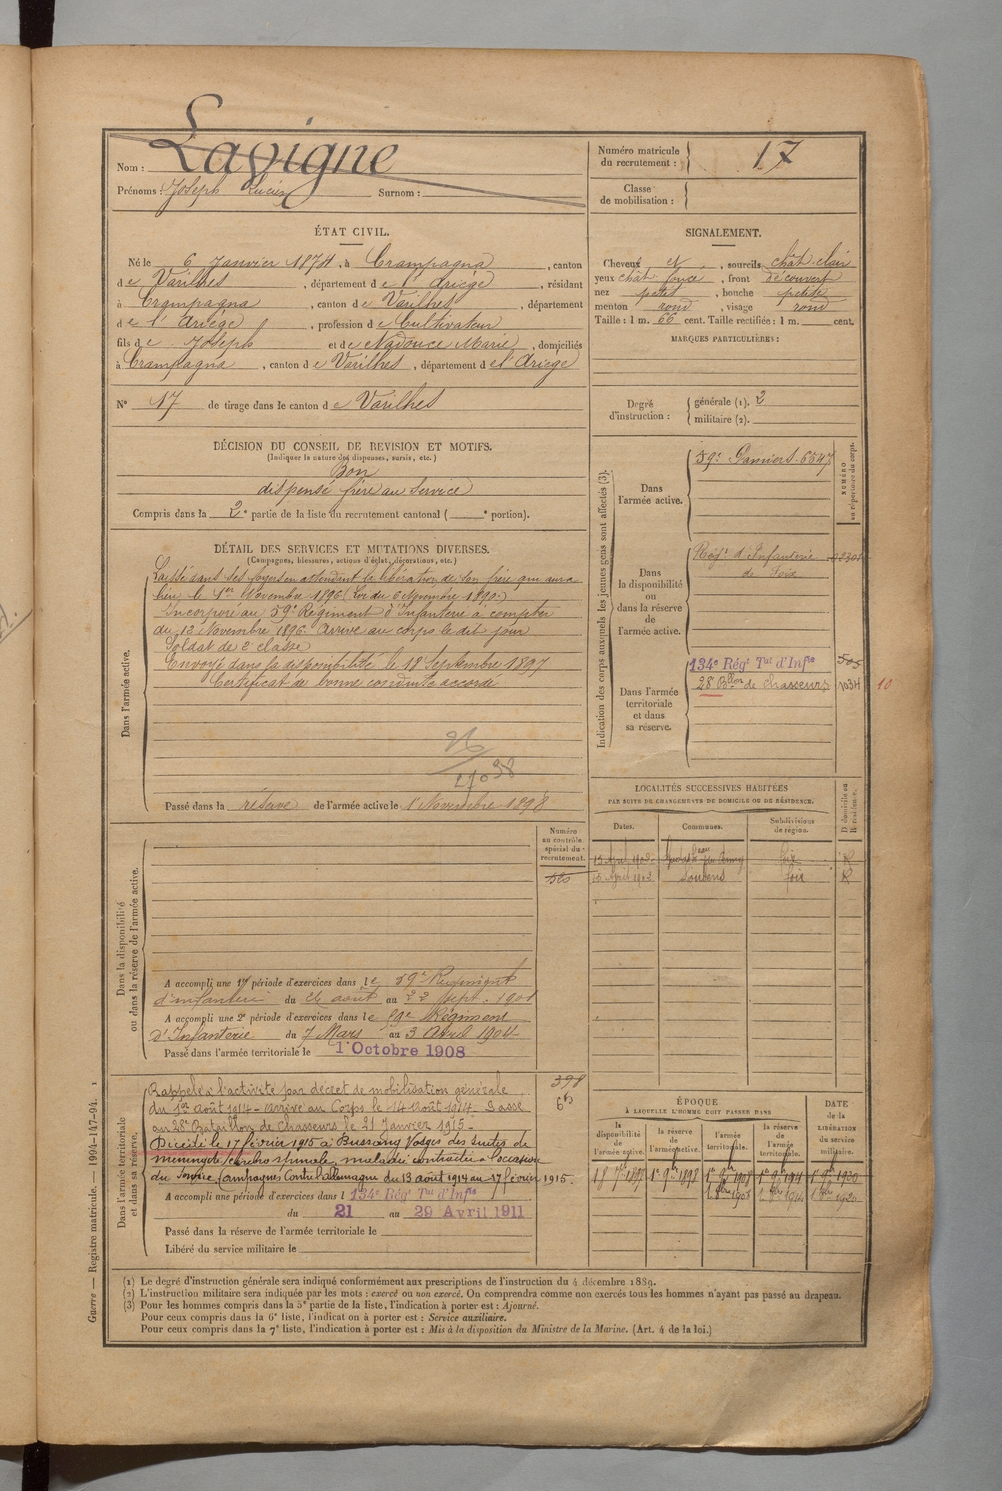 Nom : Lavigne
Prénoms : Joseph Lucien Surnom :
Numéro matricule du recrutement : 17
Classe de mobilisation :
ÉTAT CIVIL.
Né le 6 Janvier 1874, à Crampagna, canton
de Varilhes, département de l'Ariège, résidant
à Crampagna, canton de Varilhes, département
de l'Ariège, profession de Cultivateur
fils de Joseph et de Nadouce Marie, domiciliés
à Crampagna, canton de Varilhes, département de l'Ariège
N° 17 de tirage dans le canton de Varilhes
SIGNALEMENT.
Cheveux et, sourcils chât. clair
yeux chât. foncé, front découvert
nez petit, bouche petite
menton rond, visage rond
Taille : 1 m. 66 cent. Taille rectifiée : 1 m. cent.
MARQUES PARTICULIÈRES :
Degré d'instruction : générale (1). 2
militaire (2).
DÉCISION DU CONSEIL DE REVISION ET MOTIFS.
(Indiquer la nature des dispenses, sursis, etc.)
Bon
dispensé frère au Service
Compris dans la 2e partie de la liste du recrutement cantonal ( e portion).
DÉTAIL DES SERVICES ET MUTATIONS DIVERSES.
(Campagnes, blessures, actions d'éclat, décorations, etc.)
Dans l'armée active.
Laissé dans ses foyers en attendant la libération de son frère qui aura
lieu le 1er Novembre 1896 (Loi du 6 Novembre 1890.)
Incorporé au 59e Régiment d'Infanterie à compter
du 12 Novembre 1896. Arrivé au corps le dit jour
Soldat de 2e classe
Envoyé dans la disponibilité le 18 Septembre 1897
Certificat de bonne conduite accordé
Passé dans la réserve de l'armée active le 1 Novembre 1898
Indication des corps auxquels les jeunes gens sont affectés (3).
NUMÉRO au répertoire du corps.
Dans l'armée active.
59e Pamiers 6547
Dans la disponibilité ou dans la réserve de l'armée active.
Régt d'Infanterie
de Foix
Dans l'armée territoriale et dans sa réserve.
134e Régt Tal d'Infie 505
28 Bllon de Chasseurs 10
LOCALITÉS SUCCESSIVES HABITÉES
PAR SUITE DE CHANGEMENTS DE DOMICILE OU DE RÉSIDENCE.
Dates. Communes. Subdivisions de région. D domicile ou R résidence.
13 April 1902 Foix R
13 April 1903 Soulens foix R
Numéro au contrôle spécial du recrutement.
Dans la disponibilité ou dans la réserve de l'armée active.
A accompli une 1re période d'exercices dans le 59e Régiment
d'infanterie du 26 août au 22 Sept. 1901
A accompli une 2e période d'exercices dans le 59e Régiment
d'Infanterie du 7 Mars au 3 Avril 1904
Passé dans l'armée territoriale le 1 Octobre 1908
Dans l'armée territoriale et dans sa réserve.
398
Rappelé à l'activité par décret de mobilisation générale
du 1er août 1914 - arrivé au Corps le 14 août 1914. Passé
au 28e Bataillon de Chasseurs le 21 Janvier 1915 -
Décédé le 17 février 1915 à Bussang Vosges des suites de
meningite cérébro spinale, maladie contractée à l'occasion
du Service. Campagnes Contre l'Allemagne du 13 août 1914 au 17 février 1915.
A accompli une période d'exercices dans l 134e Régt Tal d'Infie
du 21 au 29 Avril 1911
Passé dans la réserve de l'armée territoriale le
Libéré du service militaire le
ÉPOQUE
À LAQUELLE L'HOMME DOIT PASSER DANS
la disponibilité de l'armée active. la réserve de l'armée active. l'armée territoriale. la réserve de l'armée territoriale.
DATE de la LIBÉRATION du service militaire.
18 7bre 1897 1er 9bre 1898 1er 9bre 1908 1er 9bre 1914 1er 9bre 1920
(1) Le degré d'instruction générale sera indiqué conformément aux prescriptions de l'instruction du 4 décembre 1889.
(2) L'instruction militaire sera indiquée par les mots : exercé ou non exercé. On comprendra comme non exercés tous les hommes n'ayant pas passé au drapeau.
(3) Pour les hommes compris dans la 5e partie de la liste, l'indication à porter est : Ajourné.
Pour ceux compris dans la 6e liste, l'indication à porter est : Service auxiliaire.
Pour ceux compris dans la 7e liste, l'indication à porter est : Mis à la disposition du Ministre de la Marine. (Art. 4 de la loi.)
Guerre — Registre matricule. — 1994-147-94.